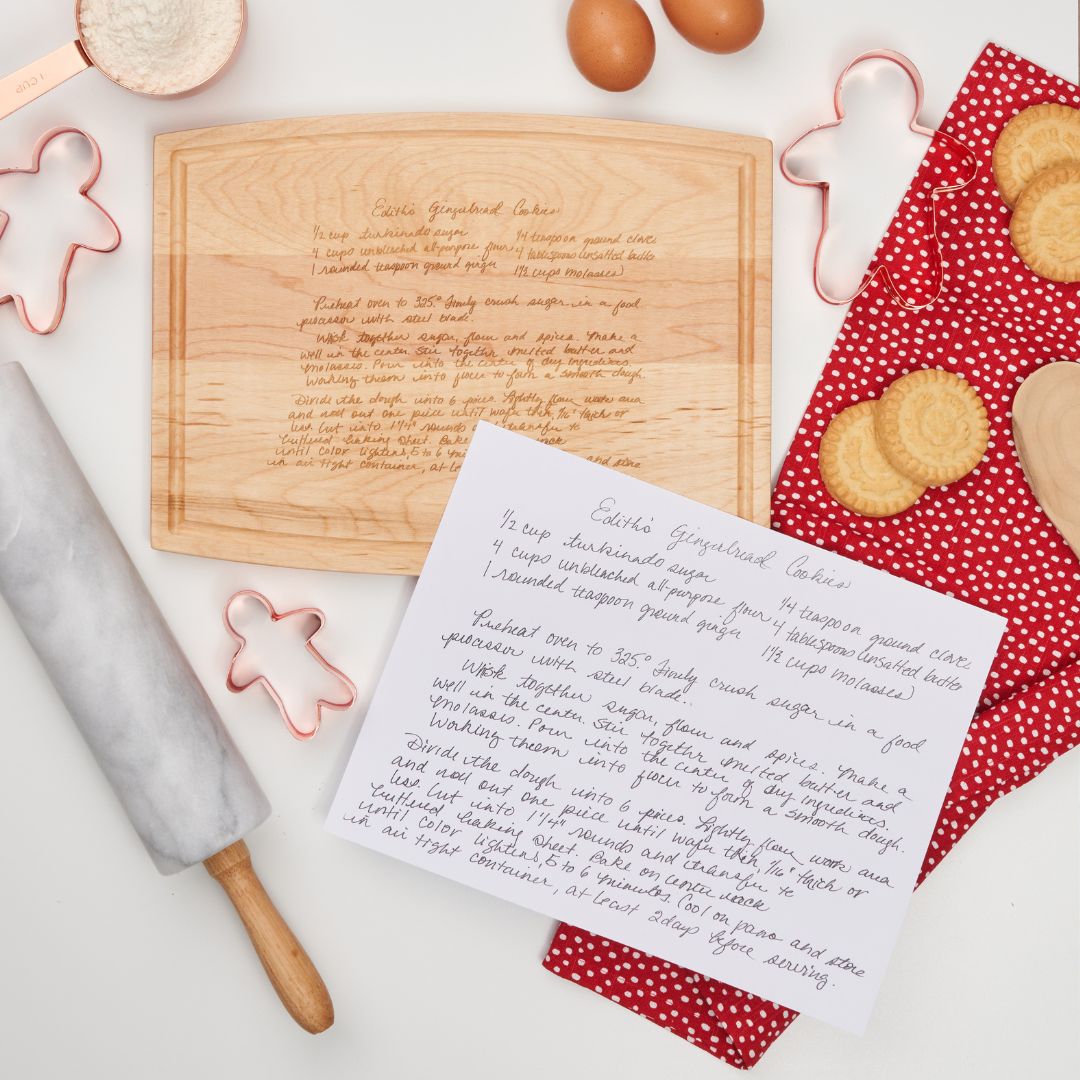 1 CUP
Edith's Gingerbread Cookies
1/2 cup turkinado sugar
4 cups unbleached all-purpose flour
1 rounded teaspoon ground ginger
1/4 teaspoon ground cloves
4 tablespoons unsalted butter
1 1/2 cups molasses)
Preheat oven to 325.° Finely crush sugar in a food
processor with steel blade.
Wisk together sugar, flour and spices. Make a
well in the center. Stir togethr melted butter and
molasses. Pour into the center of dry ingredients.
Working them into flour to form a smooth dough.
Divide the dough into 6 pices. Lightly flour work area
and roll out one piece until wafer thin, 1/16" thich or
less. Cut into 1 1/4" rounds and transfer to
buttered baking sheet. Bake rack
until color lightens, 5 to 6 and store
in air tight container, at
Edith's Gingerbread Cookies
1/2 cup turkinado sugar
4 cups unbleached all-purpose flour
1 rounded teaspoon ground ginger
1/4 teaspoon ground cloves
4 tablespoons unsalted butter
1 1/2 cups molasses)
Preheat oven to 325.° Finely crush sugar in a food
processor with steel blade..
Wisk together sugar, flour and spices. Make a
well in the center. Stir togethr melted butter and
molasses. Pour into the center of dry ingredients.
Working them into flour to form a smooth dough.
Divide the dough into 6 pices. Lightly flour work area
and roll out one piece until wafer thin, 1/16" thich or
less. Cut into 1 1/4" rounds and transfer to
buttered baking sheet. Bake on center rack
until color lightens, 5 to 6 minutes. Cool on pans and store
in air tight container, at least 2 days before serving.